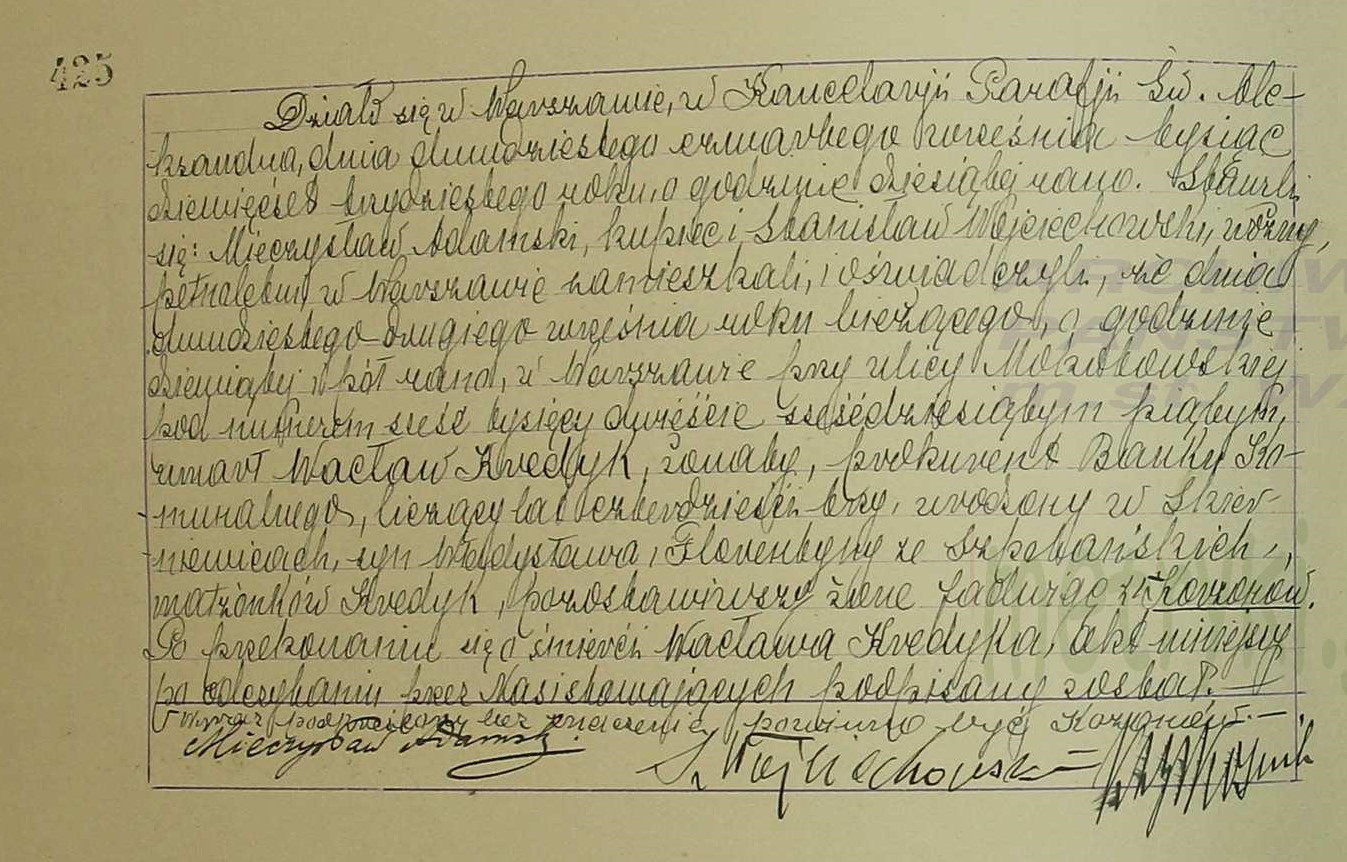 425
Działo się w Warszawie, w Kancelaryji Parafji Św. Ale-
ksandra, dnia dwudziestego czwartego września tysiąc
dziewięćset trzydziestego roku, o godzinie dziesiątej rano. Stawili
się: Mieczysław Adamski, kupiec i Stanisław Wojciechowski, woźny,
pełnoletni, w Warszawie zamieszkali, i oświadczyli, że dnia
dwudziestego drugiego września roku bieżącego, o godzinie
dziewiątej i pół rano, w Warszawie przy ulicy Mokotowskiej
pod numerem sześć tysięcy dwieście sześćdziesiątym piątym,
zmarł Wacław Kredyk, żonaty, prokurent Banku Ko-
munalnego, liczący lat czterdzieści trzy, urodzony w Skier-
niewicach, syn Władysława i Florentyny ze Szketańskich,
małżonków Kredyk, pozostawiwszy żonę Jadwigę z Korzonów.
Po przekonaniu się o śmierci Wacława Kredyka, akt niniejszy
po odczytaniu przez Nas i stawających podpisany został.
Wyraz podpisany bez znaczenia, powinno być
Mieczysław Adamski
S. Wojciechowski